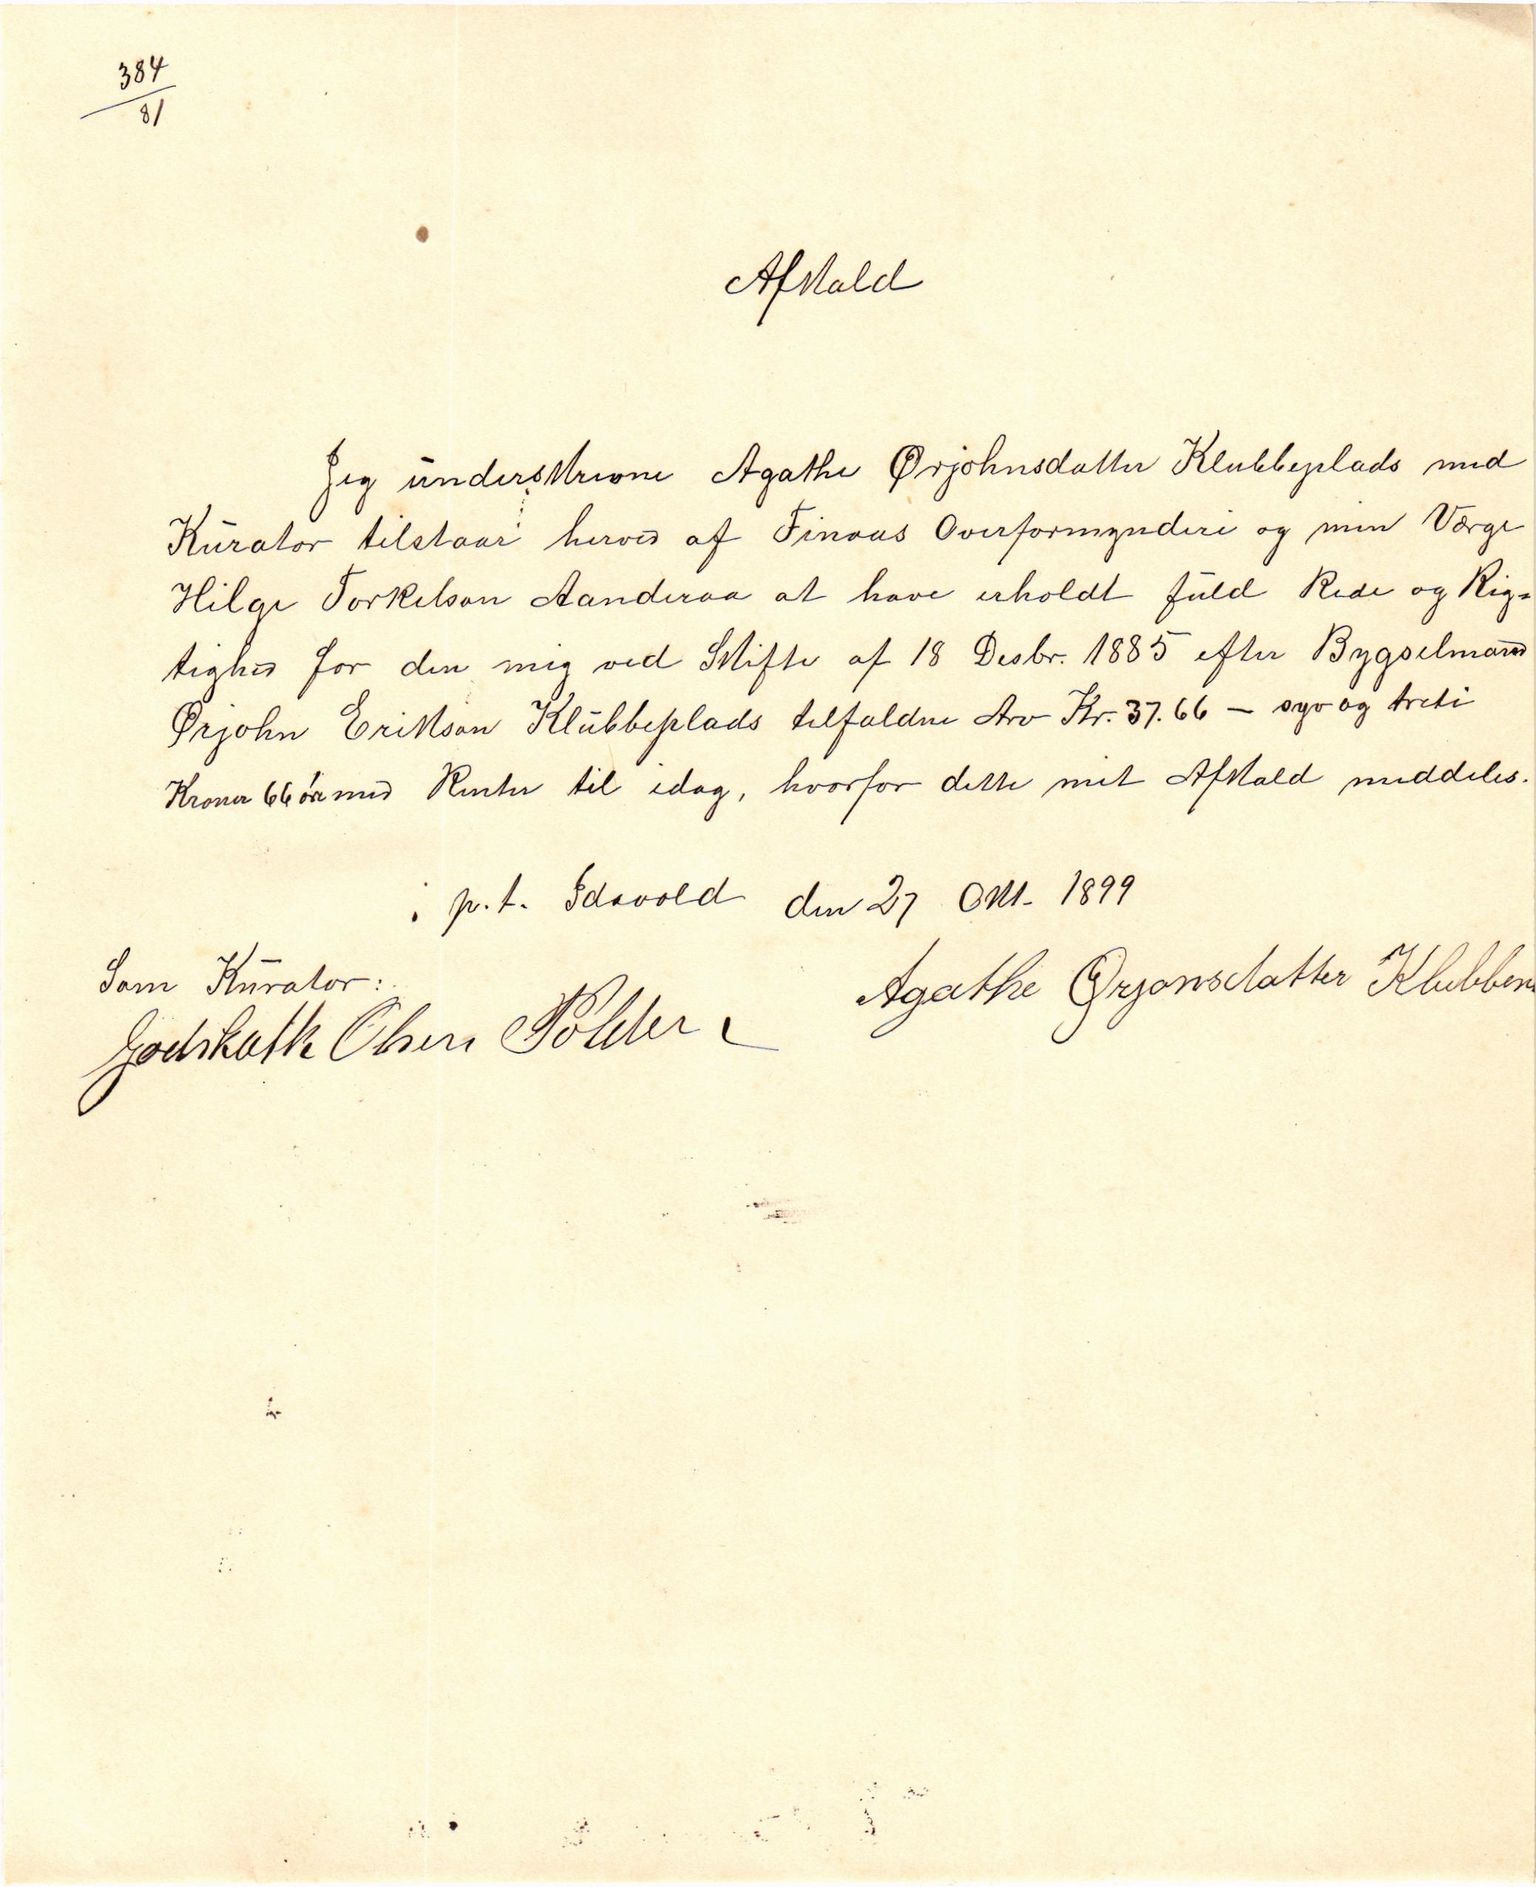 384
81
Afkald
Jeg underskrevne Agathe Ørjohnsdatter Klubbeplads med
Kurator tilstaar herved af Finaas Overformynderi og min Værge
Helge Torkelson Aanderaa at have erholdt fuld Rede og Rig=
tighed for den mig ved Skifte af 18 Desbr. 1885 efter Bygselmand
Ørjohn Erikson Klubbeplads tilfaldne Arv Kr. 37.66 — syv og treti
Kroner 66 øre med Renter til idag, hvorfor dette mit Afkald meddeles.
p.t. Idavold den 27 Okt. 1899
Som Kurator:
Agathe Ørjansdatter Klubben
Godskalk Olsen Polden